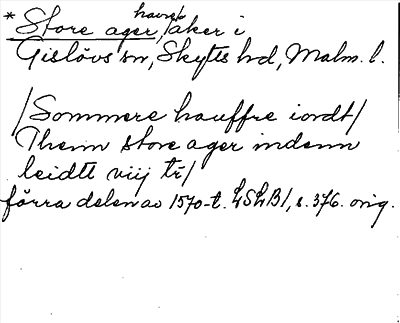 * Store ager, havre/åker i
Gislövs sn, Skytts hd, Malm. l.
/Sommere hauffre iordt/
Thenn store ager indenn
leidtt viij tr/
förra delen av 1570-t. LSLB1, s. 376. orig.